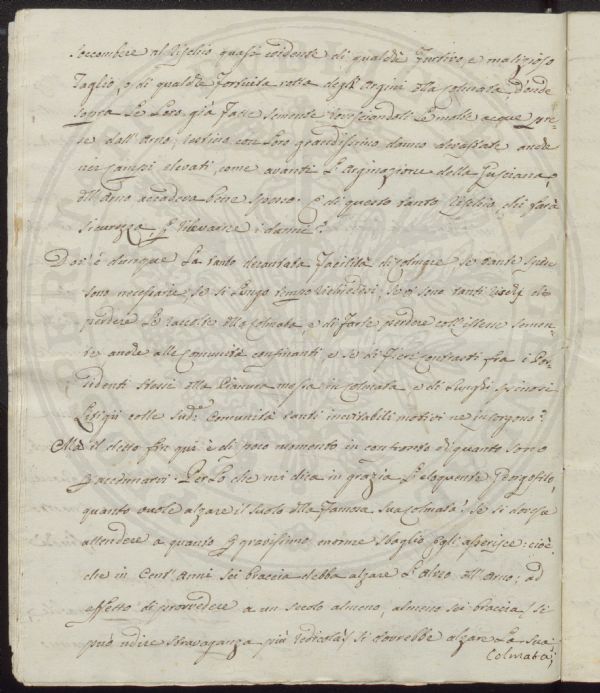 soccombere al Rischio quasi evidente di qualche furtivo, e malizioso
Taglio, o di qualche fortuita rotta degl'Argini alla Colmata, d'onde
sopra le loro già fatte semente rovesciandosi le molte acque pre-
se dall'Arno, restino con loro grandissimo danno devastate anche
nei Campi elevati, come avanti l'Arginazione della Gusciana, e
dell'Arno accadeva bene spesso. E di questo tanto Rischio, chi farà
sicurezza p rilevarne i danni?
Dov'è dunque la tanto decantata facilità di Colmare, se tante spese
sono necessarie, se si lungo tempo richiedesi, se vi sono tanti rischj di
perdere le raccolte alla Colmata, e di farle perdere coll'istesse semen-
te anche alle Comunità confinanti, e se di fieri contrasti fra i Pos-
sidenti stessi alla Pianura messa in Colmata, e di lunghi spinosi
Litigii colle Sud.e Comunità tanti inevitabili motivi ne insorgono?
Ma il detto fin qui è di poco momento in confronto di quanto sono
p accennarvi. Perlo che mi dica in grazia l'eloquente Georgofilo,
quanto vuole alzare il suolo alla famosa sua Colmata? Se si dovesse
attendere a quanto p gravissimo enorme sbaglio Egli asserisce: cioè,
che in Cent'Anni sei braccia debba alzare l'alveo dell'Arno; ad
effetto di provvedere a un secolo almeno, almeno sei braccia (si
può udire stravaganza più ridicola?) si dovrebbe alzare la sua
Colmata;